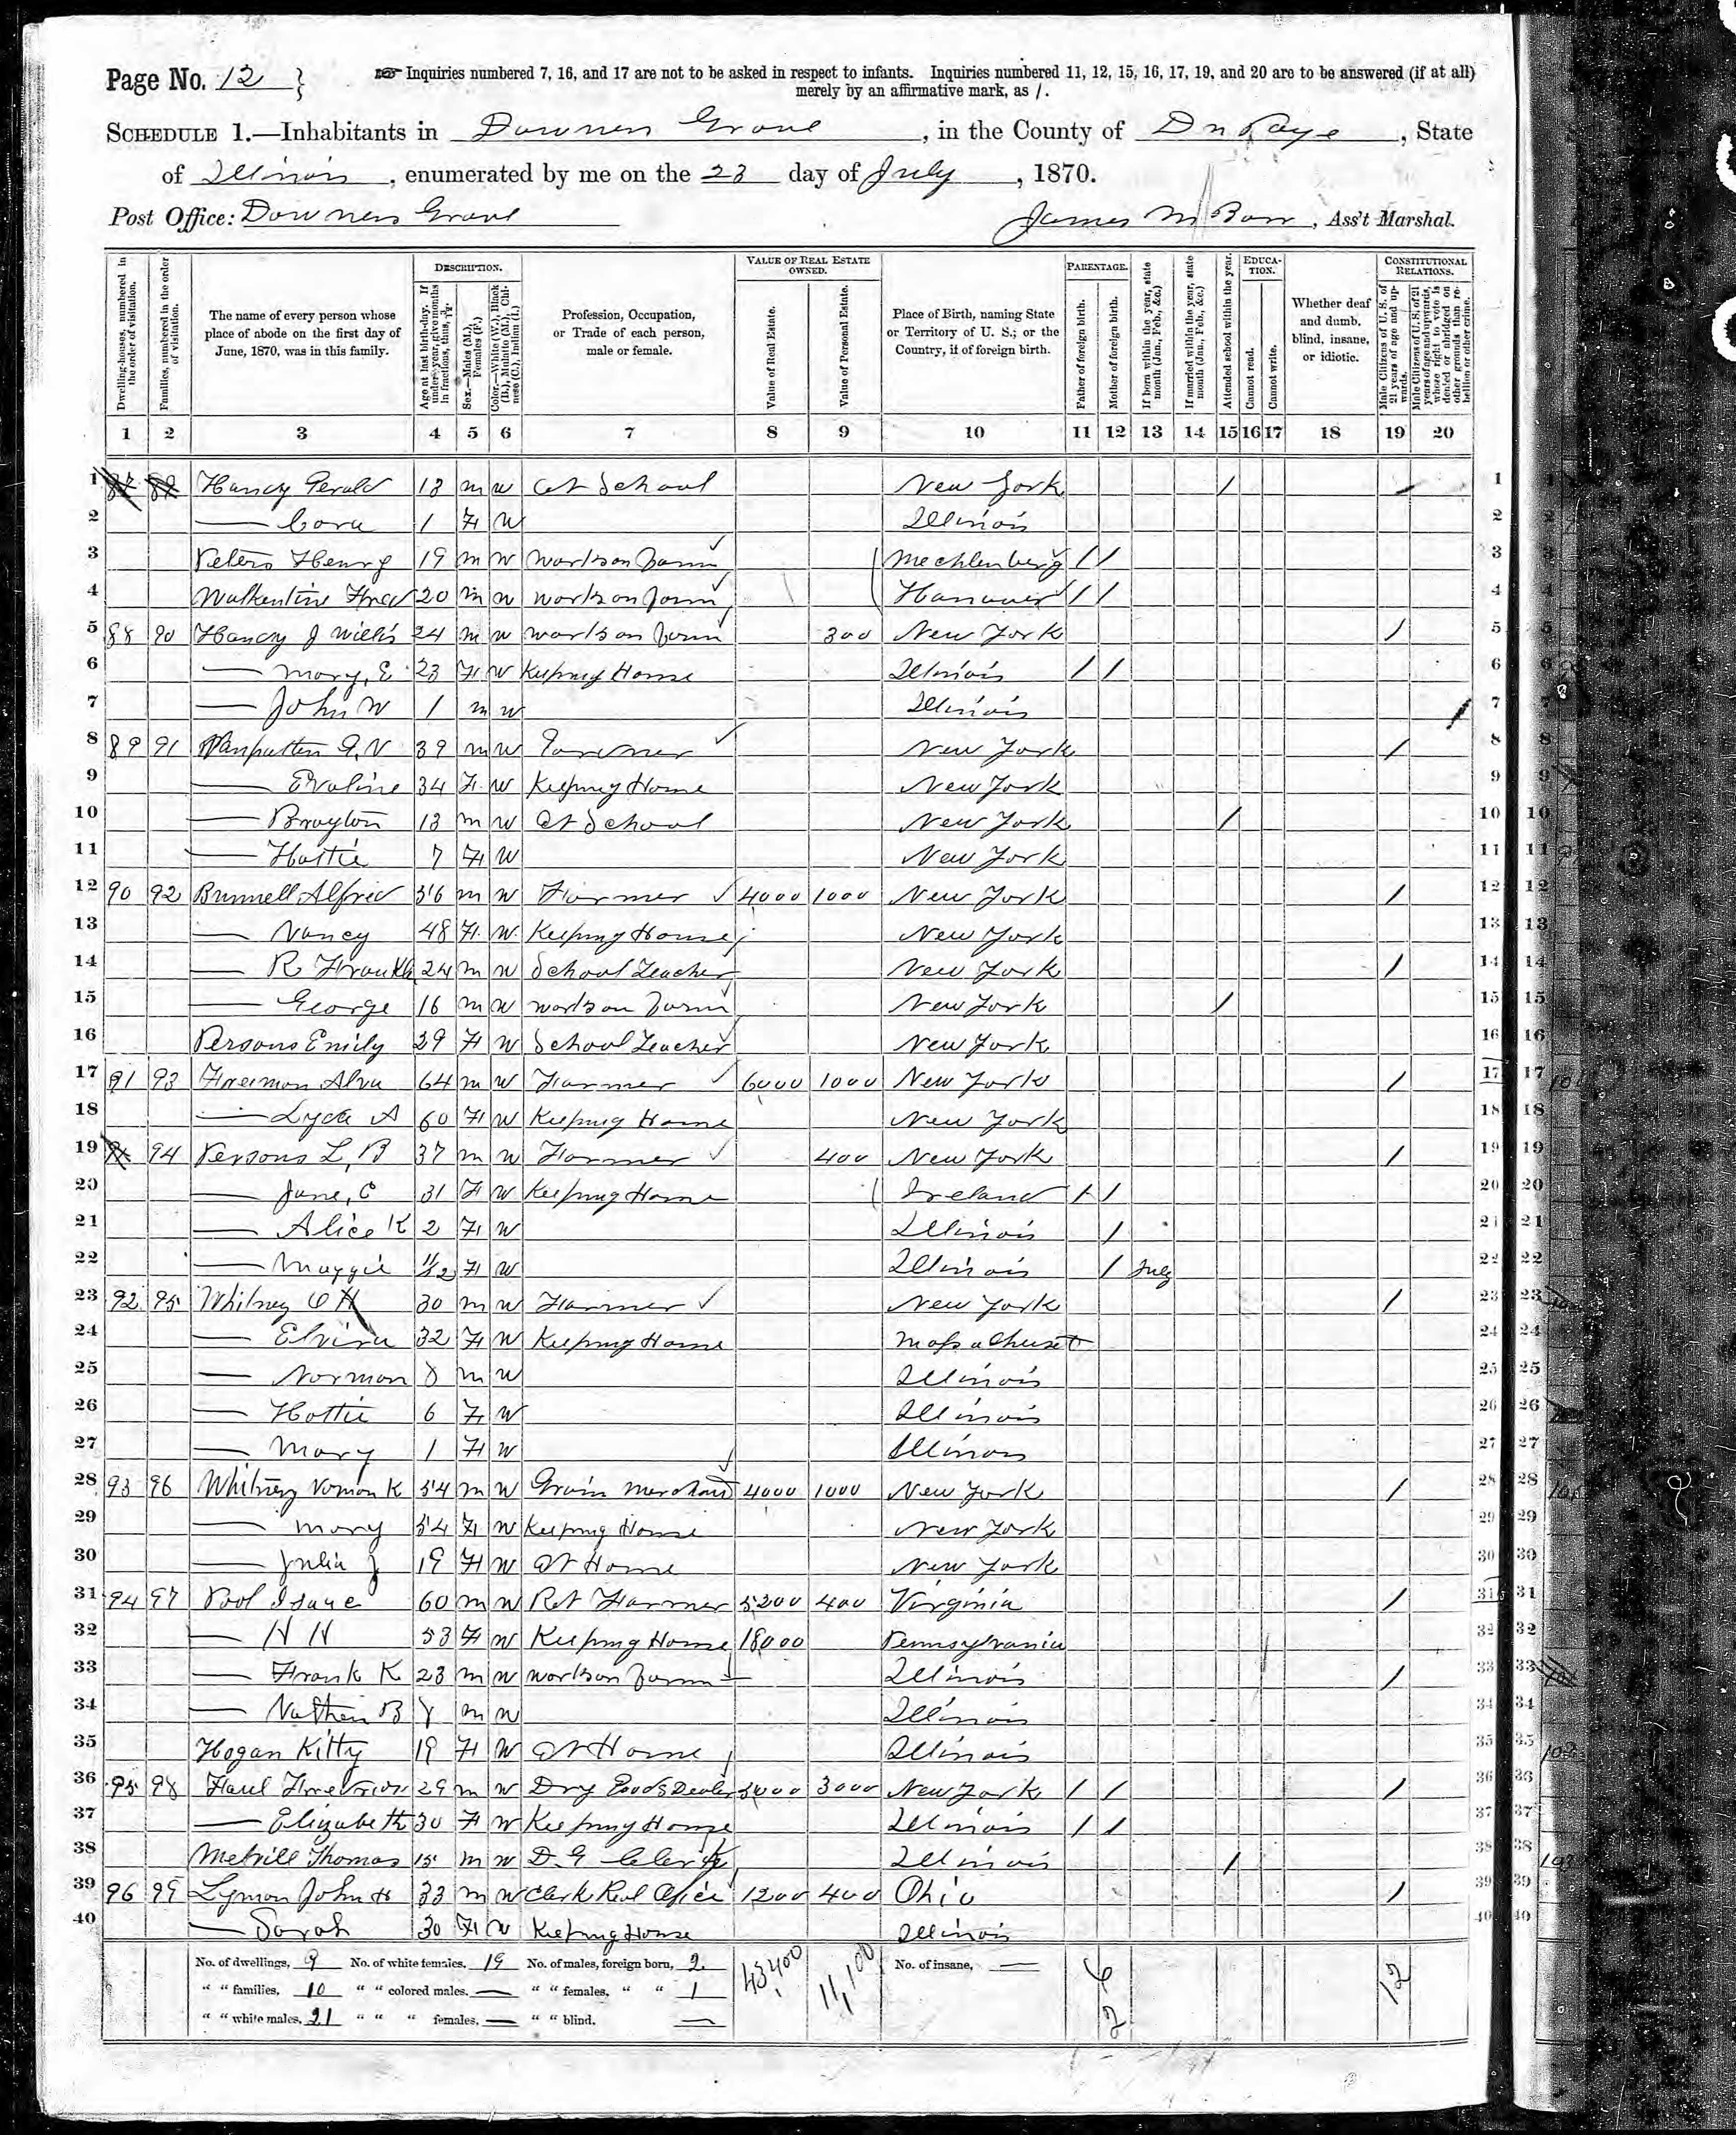 Page No. 12
Inquiries numbered 7, 16, and 17 are not to be asked in respect to infants. Inquiries numbered 11, 12, 15, 16, 17, 19, and 20 are to be answered (if at all)
merely by an affirmative mark, as /.
SCHEDULE 1.—Inhabitants in Downers Grove, in the County of DuPage, State
of Illinois, enumerated by me on the 23 day of July, 1870.
Post Office: Downers Grove
James M Barr, Ass't Marshal.
DESCRIPTION. VALUE OF REAL ESTATE OWNED. PARENTAGE. EDUCATION. CONSTITUTIONAL RELATIONS.
Dwelling-houses, numbered in the order of visitation.
Families, numbered in the order of visitation.
The name of every person whose place of abode on the first day of June, 1870, was in this family.
Age at last birth-day. If under 1 year, give months in fractions, thus, 3/12
Sex.—Males (M.), Females (F.)
Color.—White (W.), Black (B.), Mulatto (M.), Chinese (C.), Indian (I.)
Profession, Occupation, or Trade of each person, male or female.
Value of Real Estate.
Value of Personal Estate.
Place of Birth, naming State or Territory of U. S.; or the Country, if of foreign birth.
Father of foreign birth.
Mother of foreign birth.
If born within the year, state month (Jan., Feb., &c.)
If married within the year, state month (Jan., Feb., &c.)
Attended school within the year.
Cannot read.
Cannot write.
Whether deaf and dumb, blind, insane, or idiotic.
Male Citizens of U. S. of 21 years of age and upwards.
Male Citizens of U. S. of 21 years of age and upwards, whose right to vote is denied or abridged on other grounds than rebellion or other crime.
1 2 3 4 5 6 7 8 9 10 11 12 13 14 15 16 17 18 19 20
1 Gerald 13 m w At School New York / 1
2 — Cora 1 F W Illinois 2
3 Peters Henry 19 m W works on farm Mechlenberg / / 3
4 20 m w works on farm Hanover / / 4
5 88 90 J Willis 24 m w works on farm 300 New York / 5
6 — Mary, E 23 F W Keeping House Illinois / / 6
7 — John W 1 m w Illinois 7
8 89 91 Vanputten 39 m W New York / 8
9 — Evaline 34 F W Keeping House New York 9
10 — Brayton 13 m W At School New York / 10
11 — Hattie 7 F W New York 11
12 90 92 Bunnell Alfred 56 m W Farmer 4000 1000 New York / 12
13 — Nancy 48 F W Keeping House New York 13
14 — R 24 m W School Teacher New York / 14
15 — George 16 m W works on farm New York / 15
16 Persons Emily 29 F W School Teacher New York 16
17 91 93 Freeman Alva 64 m W Farmer 6000 1000 New York / 17
18 — Lyda A 60 F W Keeping House New York 18
19 94 Persons L, B 37 m W Farmer 400 New York / 19
20 — Jane, C 31 F W Keeping House Ireland / / 20
21 — Alice K 2 F W Illinois / 21
22 — Maggie F W Illinois / July 22
23 92 95 Whitney 30 m W Farmer New York / 23
24 — Elvira 32 F W Keeping House Massachuset 24
25 — Norman 8 m W Illinois 25
26 — Hattie 6 F W Illinois 26
27 — Mary 1 F W Illinois 27
28 93 96 Whitney K 54 m W Grain Merchant 4000 1000 New York / 28
29 — Mary 54 F W Keeping House New York 29
30 — Julia J 19 F W At Home New York 30
31 94 97 Pool Isaac 60 m W Ret Farmer 5200 400 Virginia / 31
32 — 53 F W Keeping House 18000 Pennsylvania 32
33 — Frank K 23 m W works on farm Illinois / 33
34 — B 8 m w Illinois 34
35 Hogan Kitty 19 F W At Home Illinois 35
36 95 98 29 m W Dry Goods Dealer 3000 New York / / / 36
37 — Elizabeth 30 F W Keeping House Illinois / / 37
38 Thomas 15 m W D. G Clerk Illinois / 38
39 96 99 Lyman John H 33 m W Clerk 1200 400 Ohio / 39
40 — Sarah 30 F W Keeping House Illinois 40
No. of dwellings, 9 No. of white females, 19 No. of males, foreign born, 2 43,400 11,100 No. of insane, —
" " families, 10 " " colored males, — " " females, " " 1 12
" " white males, 21 " " " females, — " " blind. —